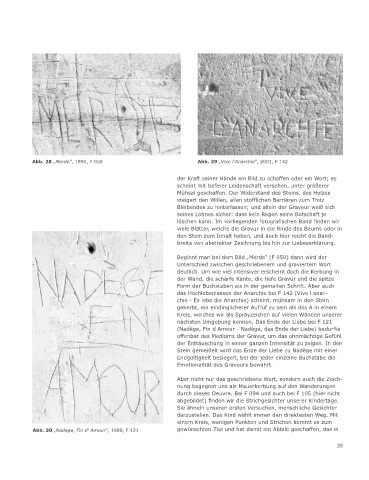 MERDE
VIVE
L'ANARCHIE
Abb. 28 „Merde", 1990, F 050
Abb. 29 „Vive l'Anarchie", 2003, F 142
der Kraft seiner Hände ein Bild zu schaffen oder ein Wort; es
scheint mit tieferer Leidenschaft versehen, unter größerer
Mühsal geschaffen. Der Widerstand des Steins, des Holzes
steigert den Willen, allen stofflichen Barrieren zum Trotz
Bleibendes zu hinterlassen; und allein der Graveur weiß sich
seines Lohnes sicher: dass kein Regen seine Botschaft je
löschen kann. Im vorliegenden fotografischen Band finden wir
viele Blätter, welche die Gravur in die Rinde des Baums oder in
den Stein zum Inhalt haben, und auch hier reicht die Band-
breite von abstrakter Zeichnung bis hin zur Liebeserklärung.
Beginnt man bei dem Bild „Merde" (F 050) dann wird der
Unterschied zwischen geschriebenem und graviertem Wort
deutlich. Um wie viel intensiver erscheint doch die Kerbung in
der Wand, die scharfe Kante, die tiefe Gravur und die spitze
Form der Buchstaben als in der gemalten Schrift. Aber auch
das Hochlebenlassen der Anarchie bei F 142 (Vive l anar-
chie - Es lebe die Anarchie) scheint, mühsam in den Stein
gekerbt, ein eindringlicherer Aufruf zu sein als das A in einem
Kreis, welches wir als Sprayzeichen auf vielen Wänden unserer
nächsten Umgebung kennen. Das Ende der Liebe bei F 121
(Nadège, Fin d Amour - Nadège, das Ende der Liebe) bedurfte
offenbar des Mediums der Gravur, um das ohnmächtige Gefühl
der Enttäuschung in seiner ganzen Intensität zu zeigen. In den
Stein gemeißelt wird das Ende der Liebe zu Nadège mit einer
Endgültigkeit besiegelt, bei der jeder einzelne Buchstabe die
Emotionalität des Graveurs bewahrt.
Aber nicht nur das geschriebene Wort, sondern auch die Zeich-
nung begegnet uns als Mauerkerbung auf den Wanderungen
durch dieses Oeuvre. Bei F 094 und auch bei F 105 (hier nicht
abgebildet) finden wir die Strichgesichter unserer Kindertage.
Sie ähneln unserer ersten Versuchen, menschliche Gesichter
darzustellen. Das Kind wählt immer den direktesten Weg. Mit
einem Kreis, wenigen Punkten und Strichen kommt es zum
gewünschten Ziel und hat damit ein Abbild geschaffen, das in
AMOUR
Abb. 30 „Nadege, Fin d' Amour", 1999, F 121
35